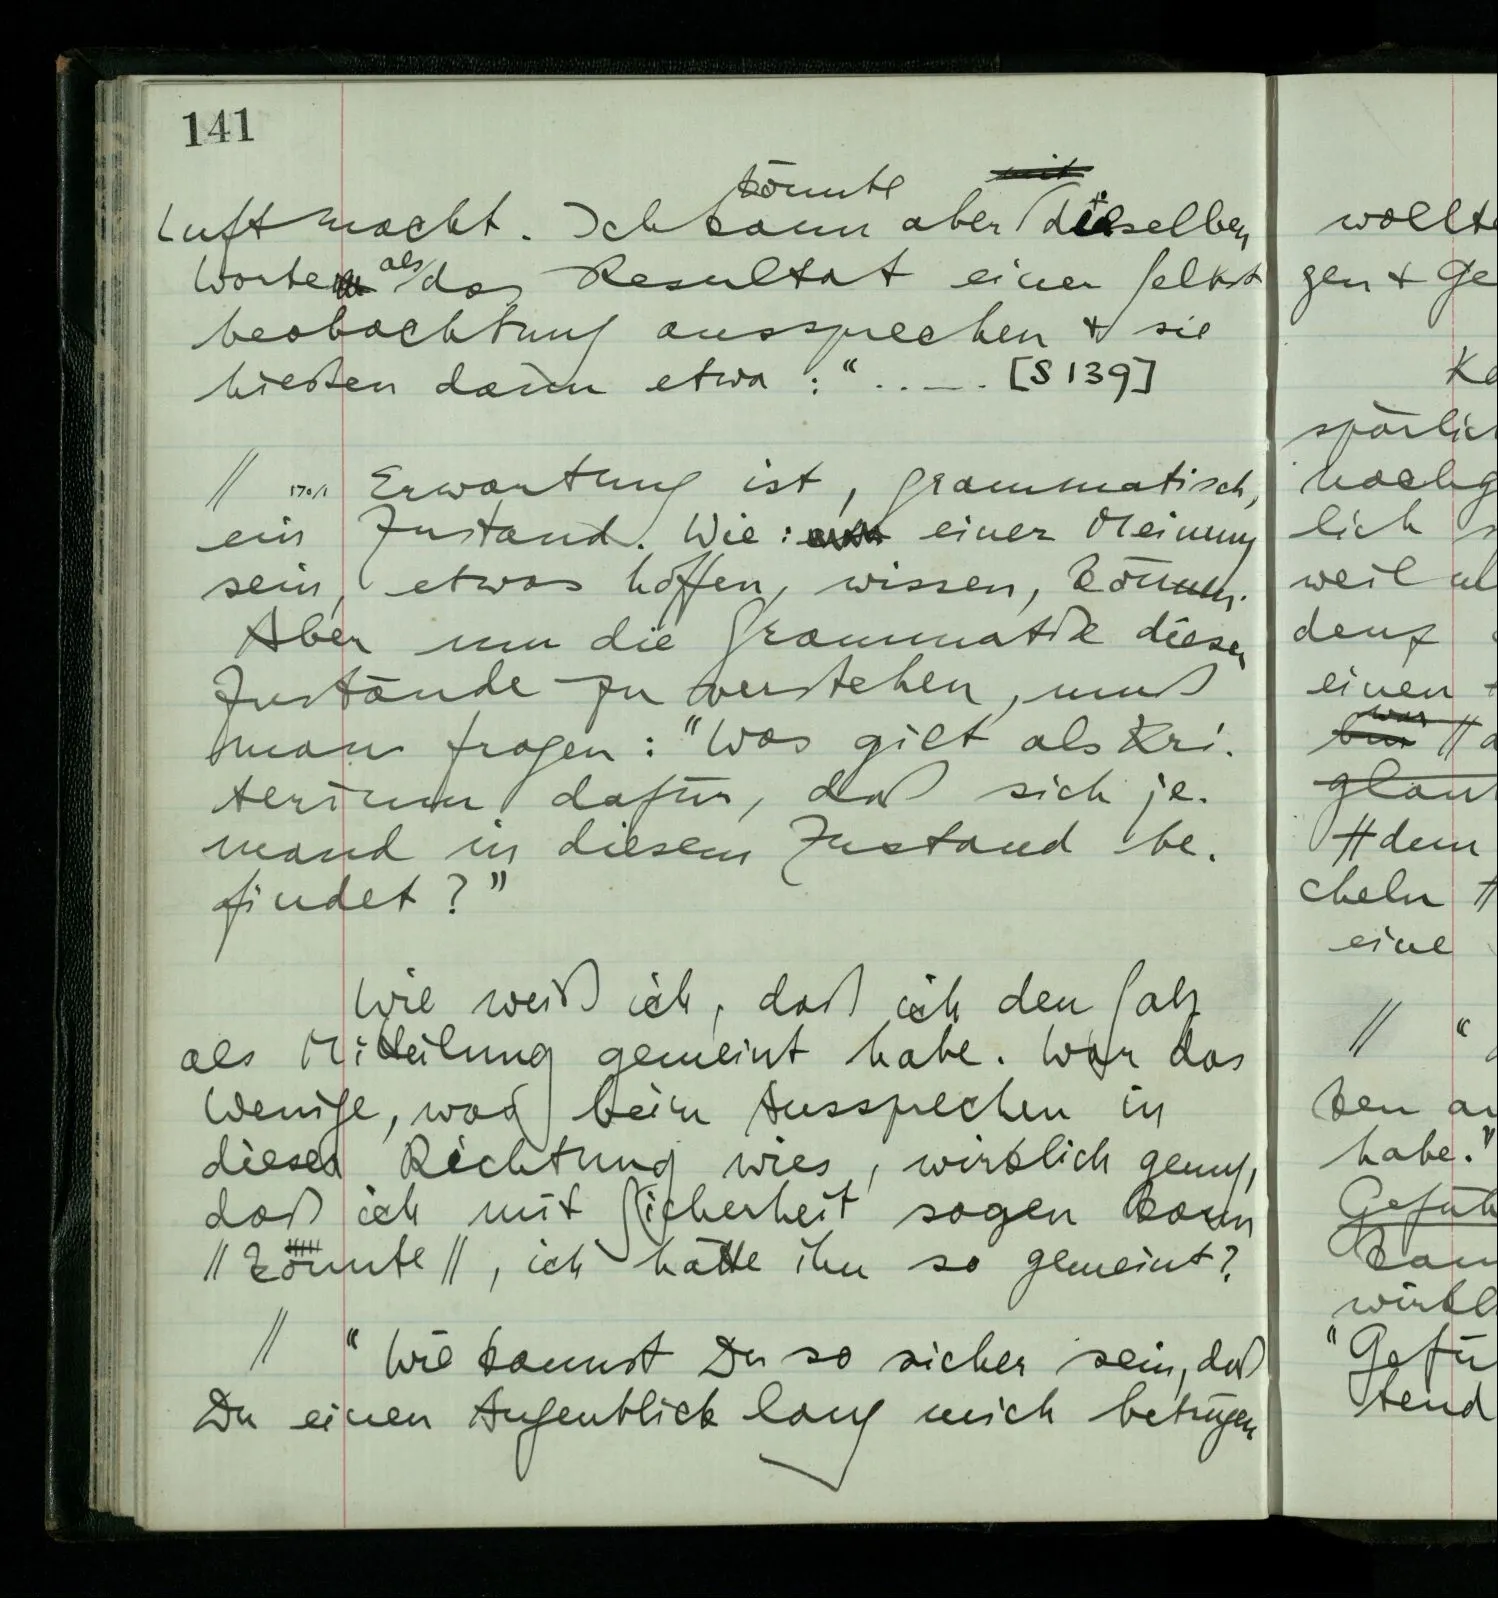 141
könnte mit
Luft macht. Ich kann aber dieselben
Worte als das Resultat einer Selbst
beobachtung aussprechen & sie
hießen dann etwa : “ . . — . [S 139]
// 170/1 Erwartung ist, grammatisch,
ein Zustand. Wie: einer Meinung
sein, etwas hoffen, wissen, können.
Aber um die Grammatik dieser
Zustände zu verstehen, muß
man fragen: "Was gilt als Kri-
terium dafür, daß sich je-
mand in diesem Zustand be-
findet?"
Wie weiß ich, daß ich den Satz
als Mitteilung gemeint habe. War das
Wenige, was beim Aussprechen in
dieser Richtung wies, wirklich genug,
daß ich mit Sicherheit sagen kann
// könnte //, ich hätte ihn so gemeint?
// "Wie kannst Du so sicher sein, daß
Du einen Augenblick lang mich betrügen
wollte
gen & Ge
spärlich
lich
weil
einen
war
bin //
glaub
// dem
cheln //
eine
// “
ken an
habe."
Gefüh
kann
wirkl
"Gefü
tend